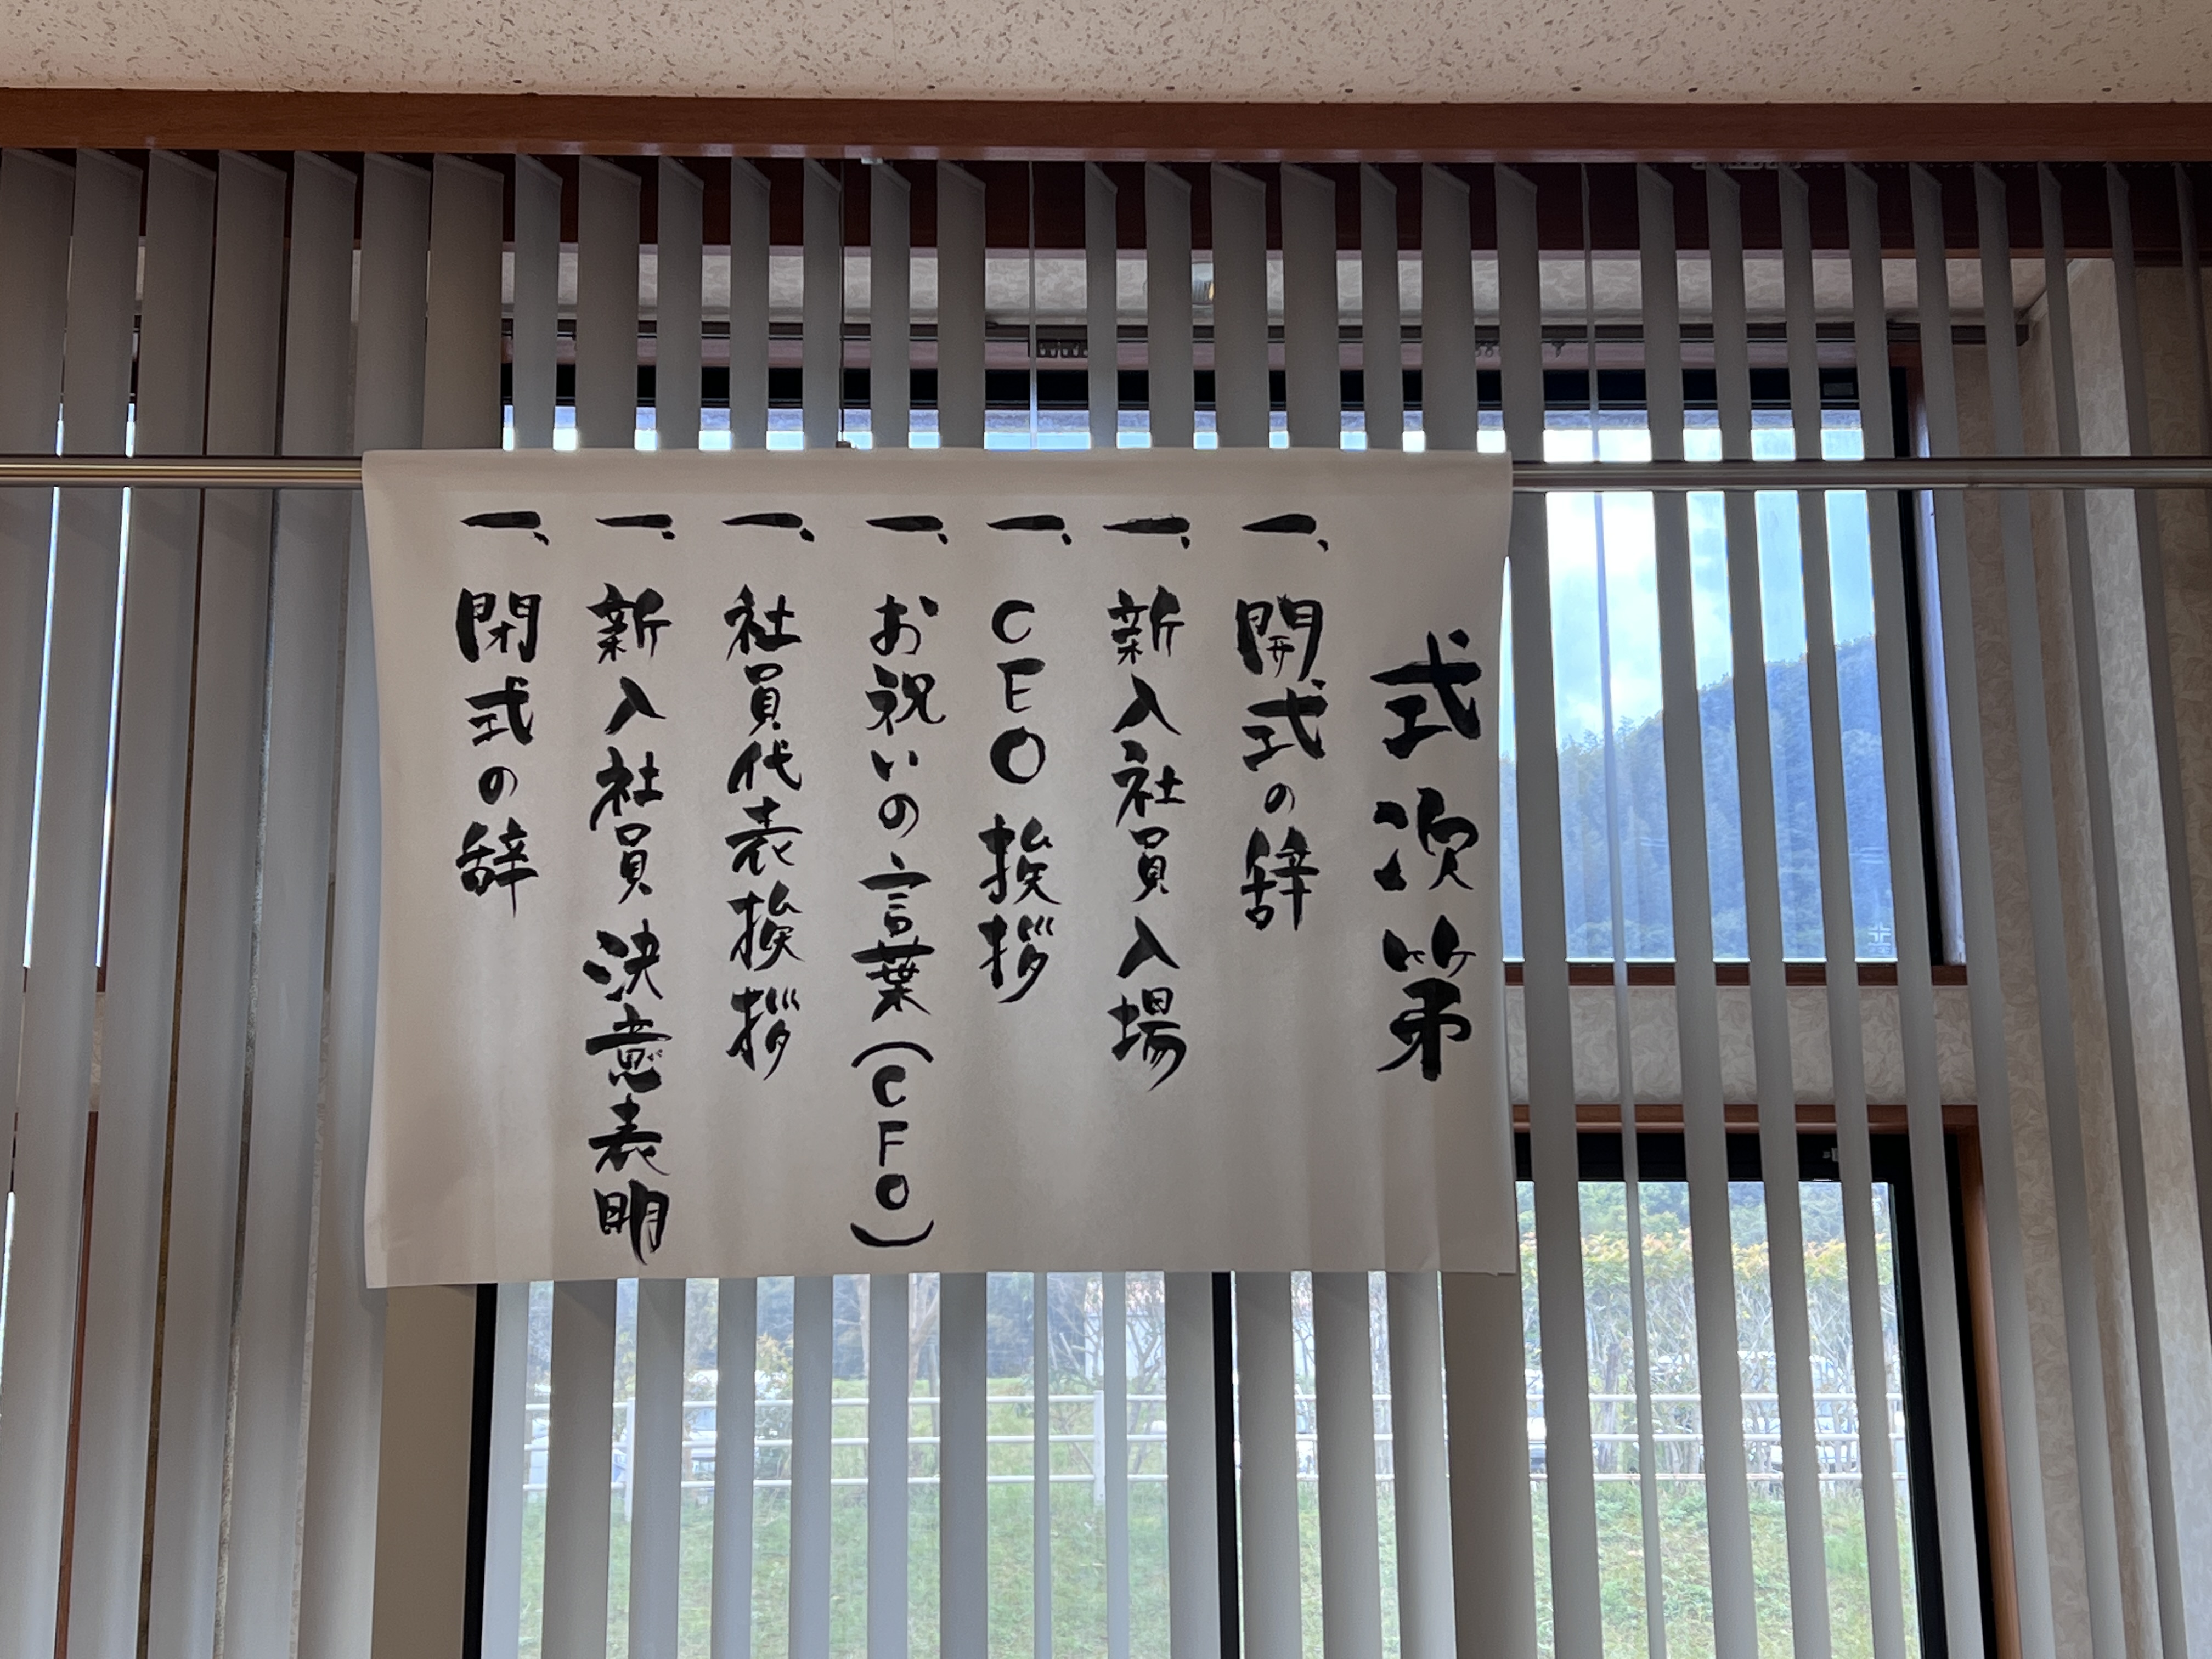 式次第
一、開式の辞
一、新入社員入場
一、CEO挨拶
一、お祝いの言葉(CFO)
一、社員代表挨拶
一、新入社員決意表明
一、閉式の辞